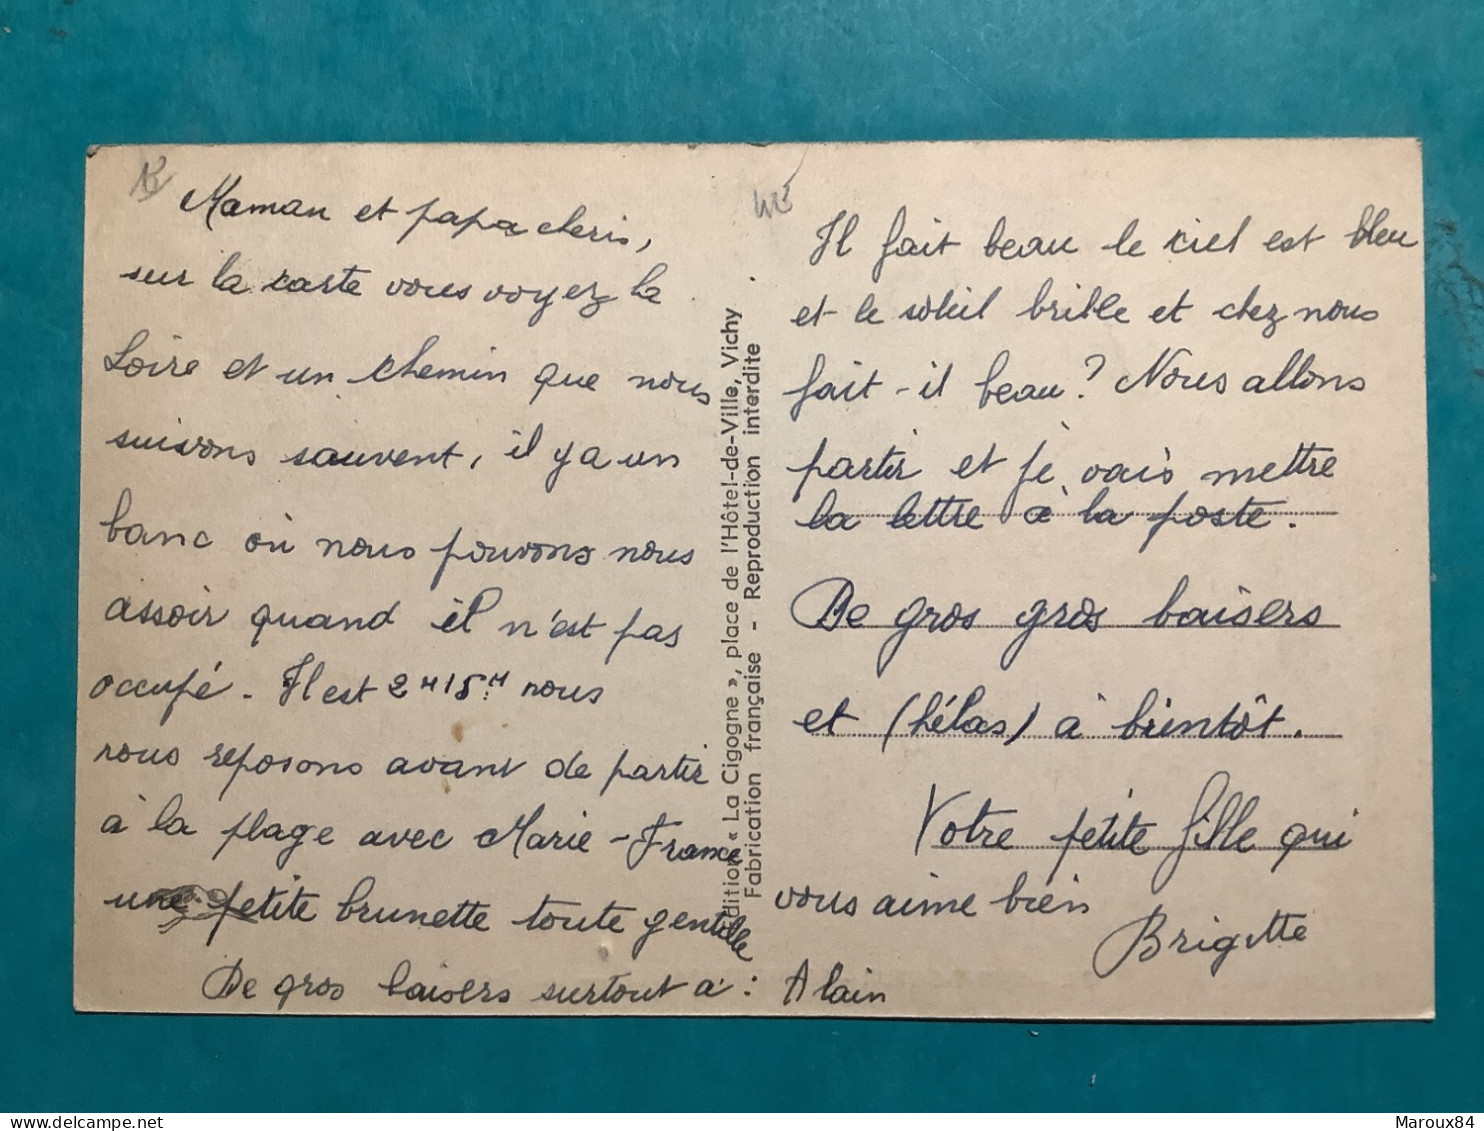 Maman et papa cheris,
sur la carte vous voyez la
Loire et un chemin que nous
suivons souvent, il y a un
banc où nous pouvons nous
assoir quand il n'est pas
occupé - Il est 2H15M nous
nous reposons avant de partir
à la plage avec Marie-France
une petite brunette toute gentille
De gros baisers surtout a : Alain
Edition « La Cigogne », place de l'Hôtel-de-Ville, Vichy
Fabrication française - Reproduction interdite
Il fait beau le ciel est bleu
et le soleil brille et chez nous
fait-il beau? Nous allons
partir et je vais mettre
la lettre à la poste.
De gros gros baisers
et (hélas) à bientôt.
Votre petite fille qui
vous aime bien
Brigitte
delcampe.net
Maroux84